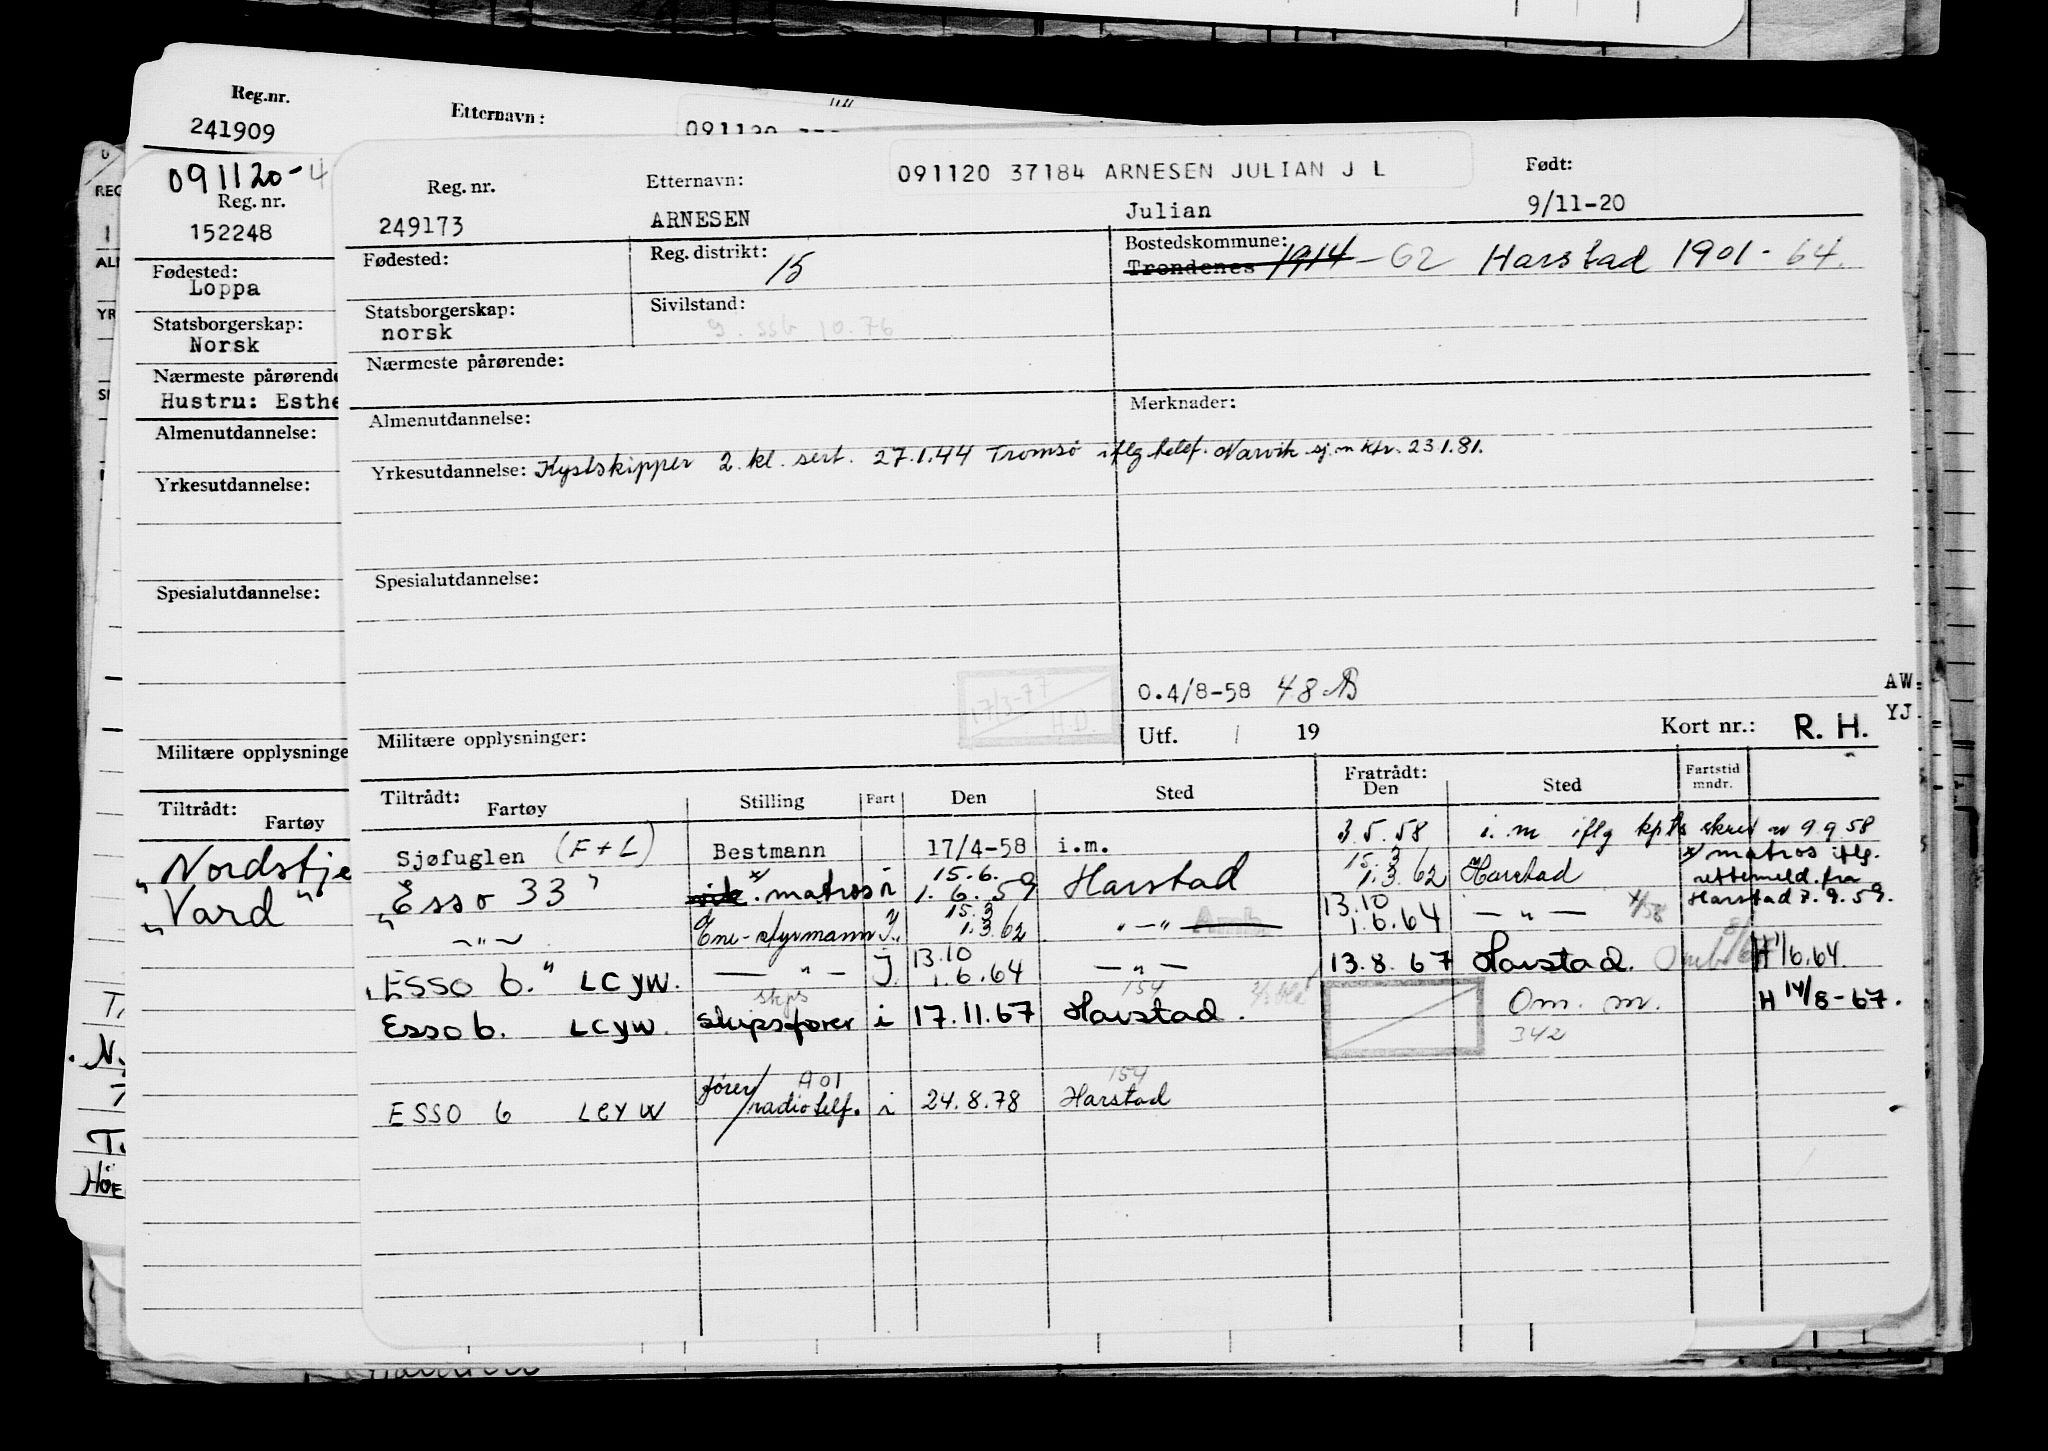 Reg.nr.
241909
Etternavn:
091120-4
Reg. nr.
152248
Fødested:
Loppa
Statsborgerskap:
Norsk
Nærmeste pårørende
Hustru: Esthe
Almenutdannelse:
Yrkesutdannelse:
Spesialutdannelse:
Militære opplysninge
Tiltrådt:
Fartøy
"Nordstje
"Vard"
091120 37184 ARNESEN JULIAN J L
Reg. nr. Etternavn: Født:
249173 ARNESEN Julian 9/11-20
Fødested: Reg. distrikt: 15 Bostedskommune:
Trondenes 1914 - 62 Harstad 1901 - 64.
Statsborgerskap: Sivilstand:
norsk g. ssb 10.76
Nærmeste pårørende:
Almenutdannelse: Merknader:
Yrkesutdannelse: Kystskipper 2. kl. sert. 27.1.44 Tromsø iflg telef. Narvik sj.m.ktr. 23.1.81.
Spesialutdannelse:
17/3-77
H.D.
O.4/8-58 48
AW.
YJ.
Militære opplysninger: Utf. / 19 Kort nr.: R. H.
Tiltrådt: Fratrådt:
Fartøy Stilling Fart Den Sted Den Sted Fartstid mndr.
Sjøfuglen (F+L) Bestmann 17/4-58 i.m. 3.5.58 i. m iflg kpts skriv av 9.9.58
"Esso 33" x/ matros i 15.6. 1.6.59 Harstad 15.3 1.3.62 Harstad x/ matros iflg. rettemeld. fra Harstad 7.9.59.
— " — Ene-styrmann J. 15.3 1.3.62 " — " 13.10 1.6.64 — " —
"ESSO 6." LCYW. — " — J. 13.10 1.6.64 — " — 13.8.67 Harstad. H 1/6.64.
Esso 6. LCYW. skps skipsfører i 17.11.67 154 Harstad. Om. m. 342 H 14/8-67.
ESSO 6 LCYW fører/radiotelf. A01 i 24.8.78 154 Harstad